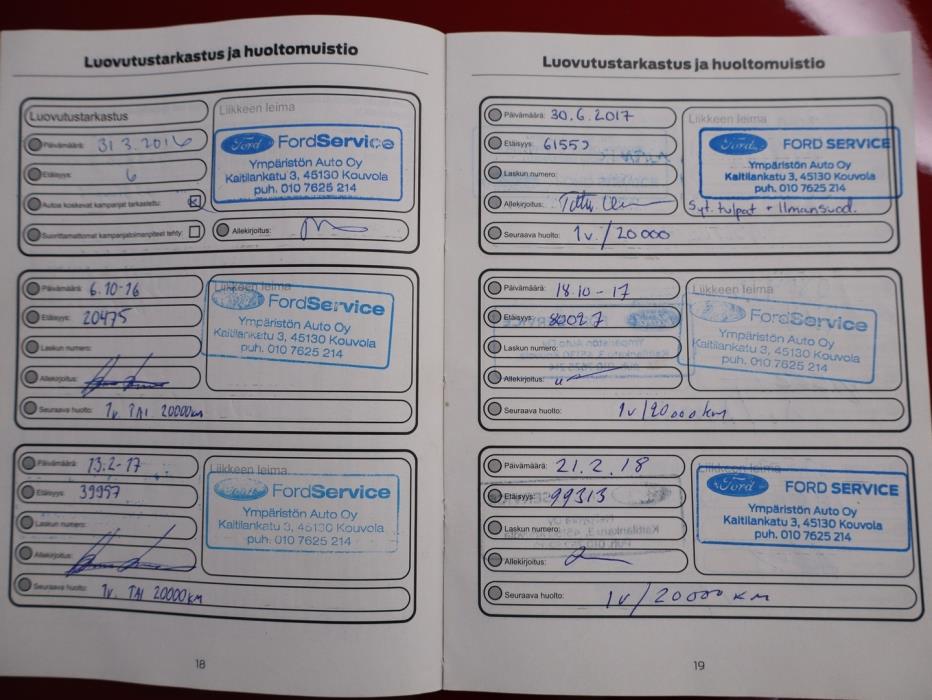 Luovutustarkastus ja huoltomuistio
Luovutustarkastus
Päivämäärä: 31 3.2016
Etäisyys: 6
Autoa koskevat kampanjat tarkastettu:
Suorittamattomat kampanjatoimenpiteet tehty:
Liikkeen leima
Ford FordService
Ympäristön Auto Oy
Kaitilankatu 3, 45130 Kouvola
puh. 010 7625 214
Allekirjoitus:
Päivämäärä: 6.10-16
Etäisyys: 20475
Laskun numero:
Allekirjoitus:
Liikkeen leima
Ford FordService
Ympäristön Auto Oy
Kaitilankatu 3, 45130 Kouvola
puh. 010 7625 214
Seuraava huolto: 1v. TAI 20000km
Päivämäärä: 13.2-17
Etäisyys: 39957
Laskun numero:
Allekirjoitus:
Liikkeen leima
Ford FordService
Ympäristön Auto Oy
Kaitilankatu 3, 45130 Kouvola
puh. 010 7625 214
Seuraava huolto: 1v. TAI 20000km
18
Luovutustarkastus ja huoltomuistio
Päivämäärä: 30.6.2017
Etäisyys:
Laskun numero:
Allekirjoitus:
Liikkeen leima
Ford FORD SERVICE
Ympäristön Auto Oy
Kaitilankatu 3, 45130 Kouvola
puh. 010 7625 214
Syt. tulpat + Ilmansuod.
Seuraava huolto: 1v./20000
Päivämäärä: 18.10-17
Etäisyys: 80027
Laskun numero:
Allekirjoitus:
Liikkeen leima
Ford FordService
Ympäristön Auto Oy
Kaitilankatu 3, 45130 Kouvola
puh. 010 7625 214
Seuraava huolto: 1v/20000km
Päivämäärä: 21.2.18
Etäisyys: 99313
Laskun numero:
Allekirjoitus:
Liikkeen leima
Ford FORD SERVICE
Ympäristön Auto Oy
Kaitilankatu 3, 45130 Kouvola
puh. 010 7625 214
Seuraava huolto: 1v/20000 KM
19